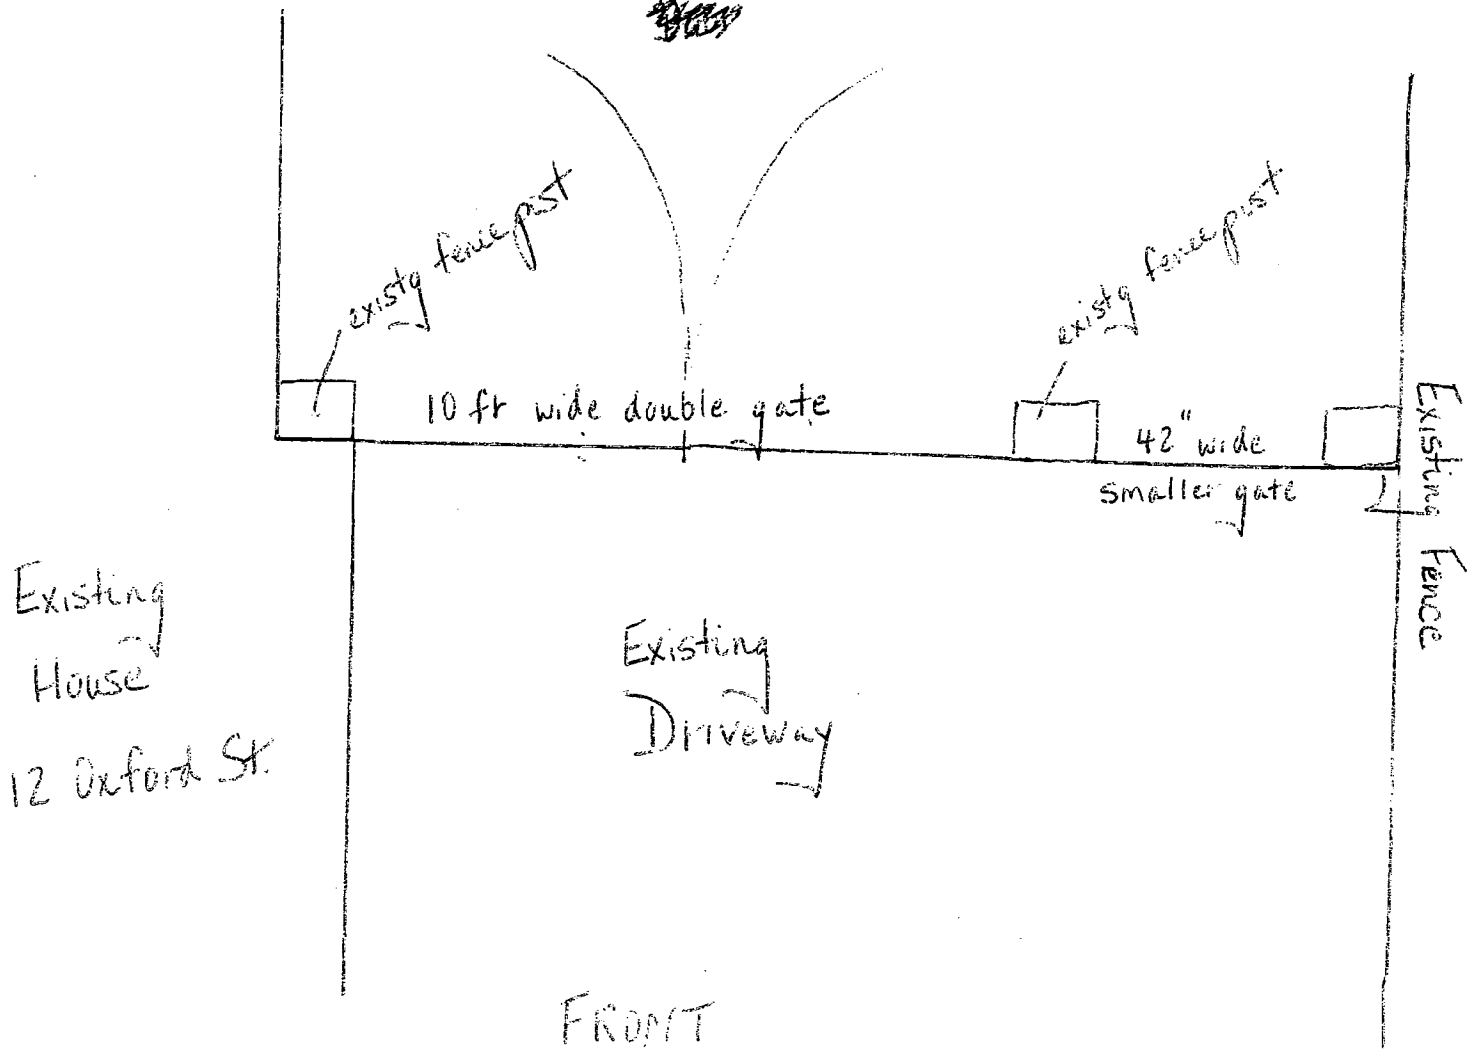 existg fence post
existg fence post
10 ft wide double gate
42" wide
smaller gate
Existing Fence
Existing
House
12 Oxford St.
Existing
Driveway
FRONT